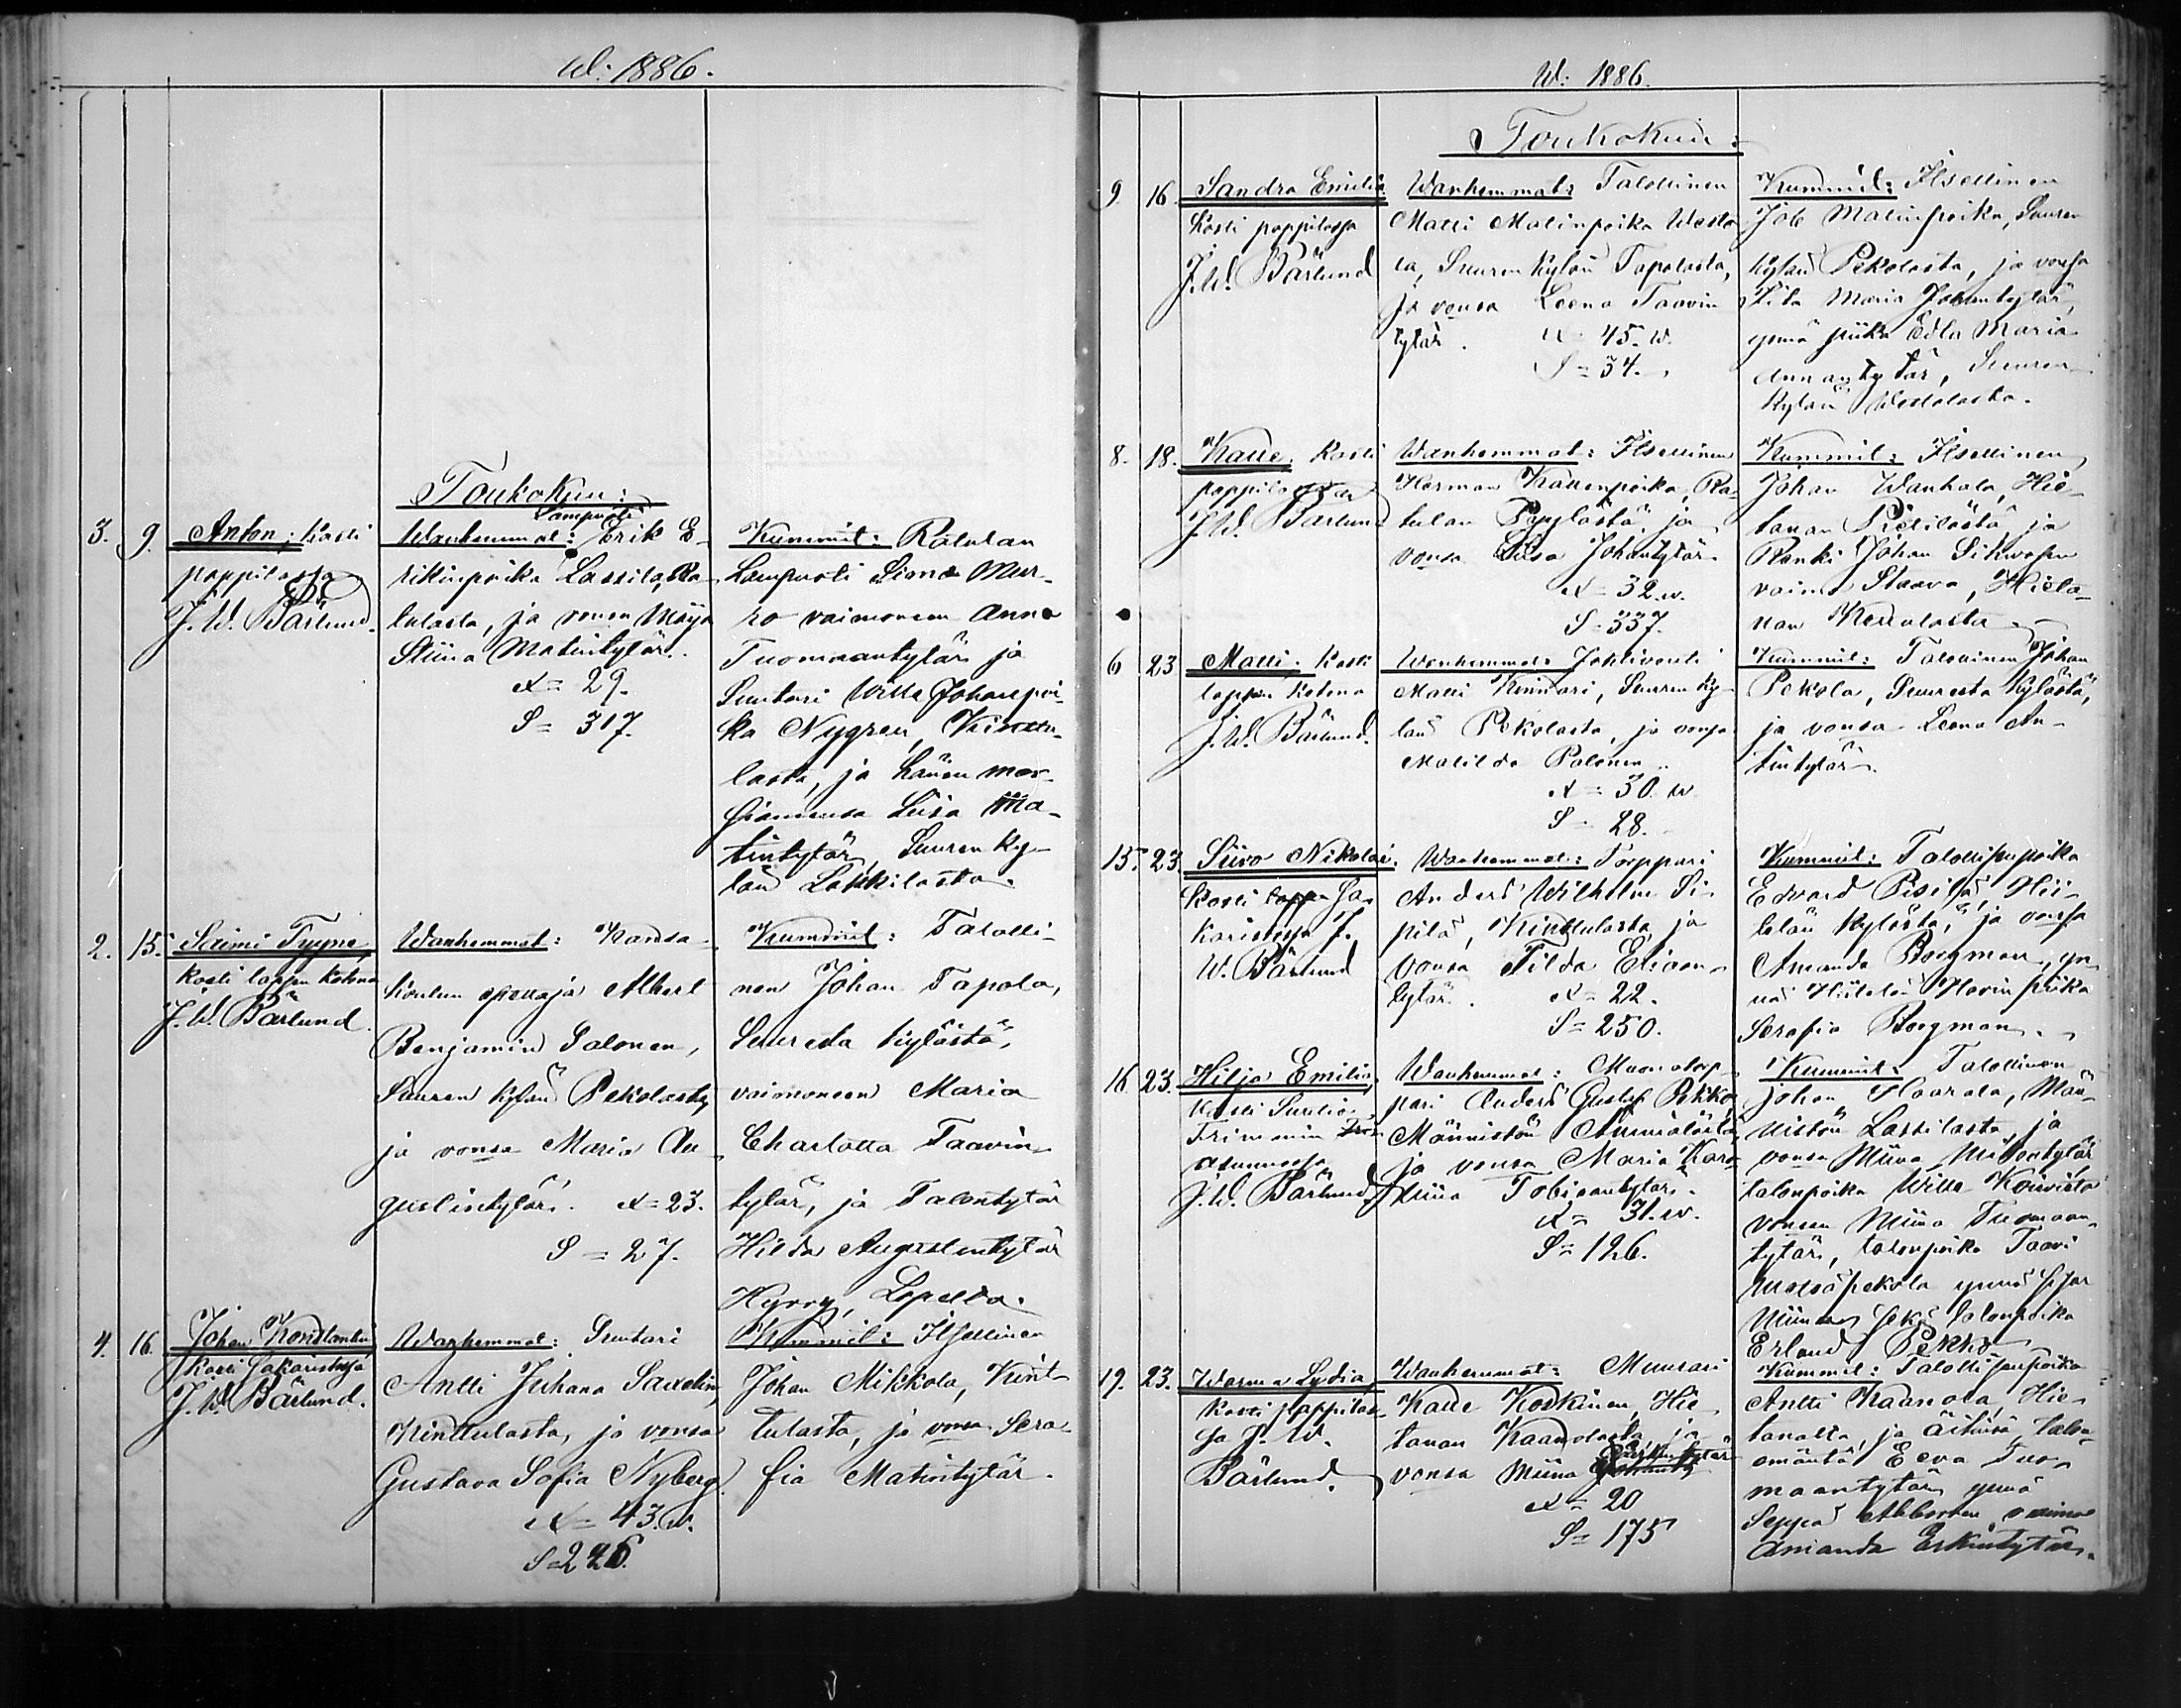 W: 1886.
Toukokuu:
3. 9. Anton; Kasti
pappilassa
J. W. Bärlund.
Lampuoti
Wanhemmat: Erik E-
rikinpoika Lassila, Ra-
tulasta, ja vonsa Maija
Stiina Matintytär.
A= 29.
S= 317.
Kummit: Ratulan
Lampuoti Simo Mur-
ro vaimoneen Anna
Tuomaantytär ja
Suutari Wille Johanpoi-
ka Nygren, Kinttu-
lasta, ja hänen mor-
siamensa Liisa Ma-
tintytär, Suuren ky-
län Lakkilasta.
2. 15. Saimi Tyyne,
Kasti lapsen kotona
J. W. Bärlund.
Wanhemmat: Kansa-
koulun opettaja Albert
Benjamin Salonen,
Suuren kylän Pekolasta,
ja vonsa Maria Au-
gustintytär. A= 23.
S= 27.
Kummit: Talolli-
nen Johan Tapola,
Suuresta kylästä,
vaimoneen Maria
Charlotta Taavin-
tytär, ja Talontytär
Hilda Augustintytär
Hyrry, Lopelta.
4. 16. Johan Konstantin
Kasti Sakaristossa
J. W. Bärlund.
Wanhemmat: Suutari
Antti Juhana Saxelin,
Kinttulasta, ja vonsa
Gustava Sofia Nyberg.
A= 43. w.
S= 226.
Kummit: Itsellinen
Johan Mikkola, Kint-
tulasta, ja vonsa Sera-
fia Matintytär.
W: 1886.
Toukokuu:
9. 16. Sandra Emilia.
Kasti pappilassa
J. W. Bärlund
Wanhemmat: Talollinen
Matti Matinpoika Westo-
la, Suuren kylän Tapolasta,
ja vonsa Leena Taavin
tytär. A= 45. w.
S= 34.
Kummit: Itsellinen
Job Matinpoika, Suuren
kylän Pekolasta, ja vonsa
Fiia Maria Johantytär,
ynnä piika Edla Maria
Annantytär, Suuren
kylän Westolasta.
8. 18. Kalle. Kasti
pappilassa
J. W. Bärlund
Wanhemmat: Itsellinen
Herman Kallenpoika, Ra-
tulan Pyylästä, ja
vonsa Liisa Johantytär
A= 32. w.
S= 337.
Kummit: Itsellinen
Johan Wanhala, Hie-
tanan Pietilästä, ja
Renki Johan Sihvosen
vaimo Staava, Hieta-
nan Kettolasta.
6 23 Matti. Kasti
lapsen kotona
J. W. Bärlund.
Wanhemmat: Jahtivouti
Matti Kinnari, Suuren ky-
län Pekolasta, ja vonsa
Matilda Palonen.
A= 30. w.
S= 28.
Kummit: Talollinen Johan
Pekola, Suuresta kylästä,
ja vonsa Leena An-
tintytär.
15. 23. Siivo Nikolai.
Kasti lapsen Sa-
karistossa J.
W. Bärlund
Wanhemmat: Torppari
Anders Wilhelm Si-
pilä, Kinttulasta, ja
vonsa Tilda Eliaan-
tytär. A= 22.
S= 250.
Kummit: Talollisenpoika
Edvard Pisilä, Hii-
telän kylästä, ja vonsa
Amanda Borgman, yn-
nä Hiitelän Hovin piika
Serafia Borgman.
16 23. Hilja Emilia.
Kasti Suntio
Frimanin
asunnossa
J. W. Bärlund
Wanhemmat: Muonatorp-
pari Anders Gustaf Pekko
Männistön Ammälästä
ja vonsa Maria Karo-
liina Tobiaantytär.
A= 31. w.
S= 126.
Kummit: Talollinen
Johan Haarala, Män-
nistön Lassilasta, ja
vonsa Miina
talonpoika Wille Koivisto
vonsa Miina Tuomaan-
tytär, talonpoika Taavi
ynnä sisar
Miina sekä talonpoika
Erland Pekko
19. 23. Warma Lydia,
Kasti pappilas-
sa J. W.
Bärlund.
Wanhemmat: Muurari
Kalle Koskinen, Hie-
tanan Kaanolasta, ja
vonsa Miina
A= 20
S= 175
Kummit: Talollisenpoika
Antti Kaanola, Hie-
tanalta, ja äitinsä talon-
emäntä Eeva Tuo-
maantytär, ynnä
Seppä Ahlroosin vaimo
Amanda Erkintytär.